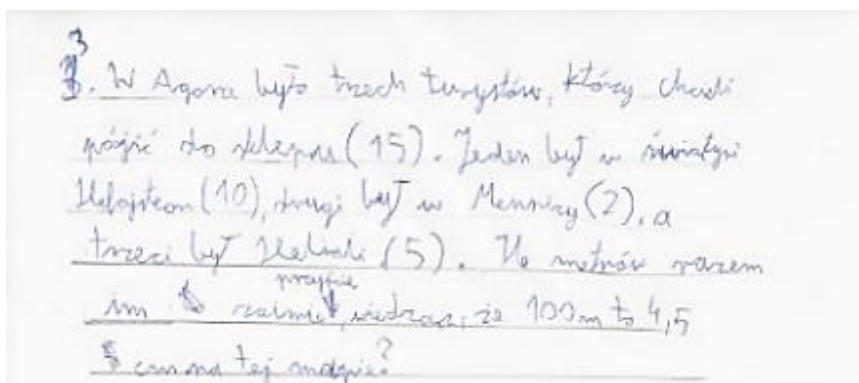 3. W Agora było trzech turystów, którzy chcieli
pójść do sklepu (15). Jeden był w świątyni
Hefajsteon (10), drugi był w Mennicy (2), a
trzeci był Heliali (5). Ile metrów razem
przejście
im zajmie, wiedząc, że 100 m to 4,5
cm na tej mapie?